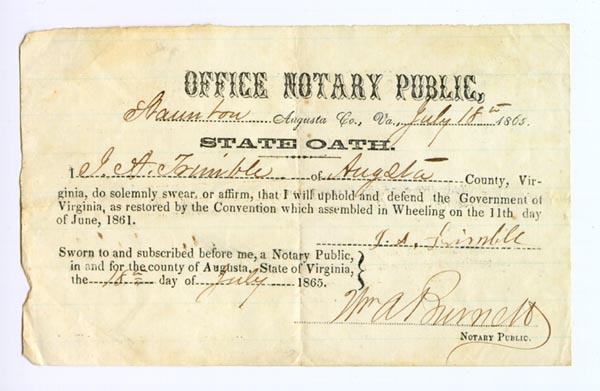 OFFICE NOTARY PUBLIC,
Staunton Augusta Co., Va., July 18th 1865.
STATE OATH.
I J. A. Trimble of Augusta County, Vir-
ginia, do solemnly swear, or affirm, that I will uphold and defend the Government of
Virginia, as restored by the Convention which assembled in Wheeling on the 11th day
of June, 1861.
J. A. Trimble
Sworn to and subscribed before me, a Notary Public,
in and for the county of Augusta, State of Virginia,
the 18th day of July 1865.
Wm A Burnett
NOTARY PUBLIC.